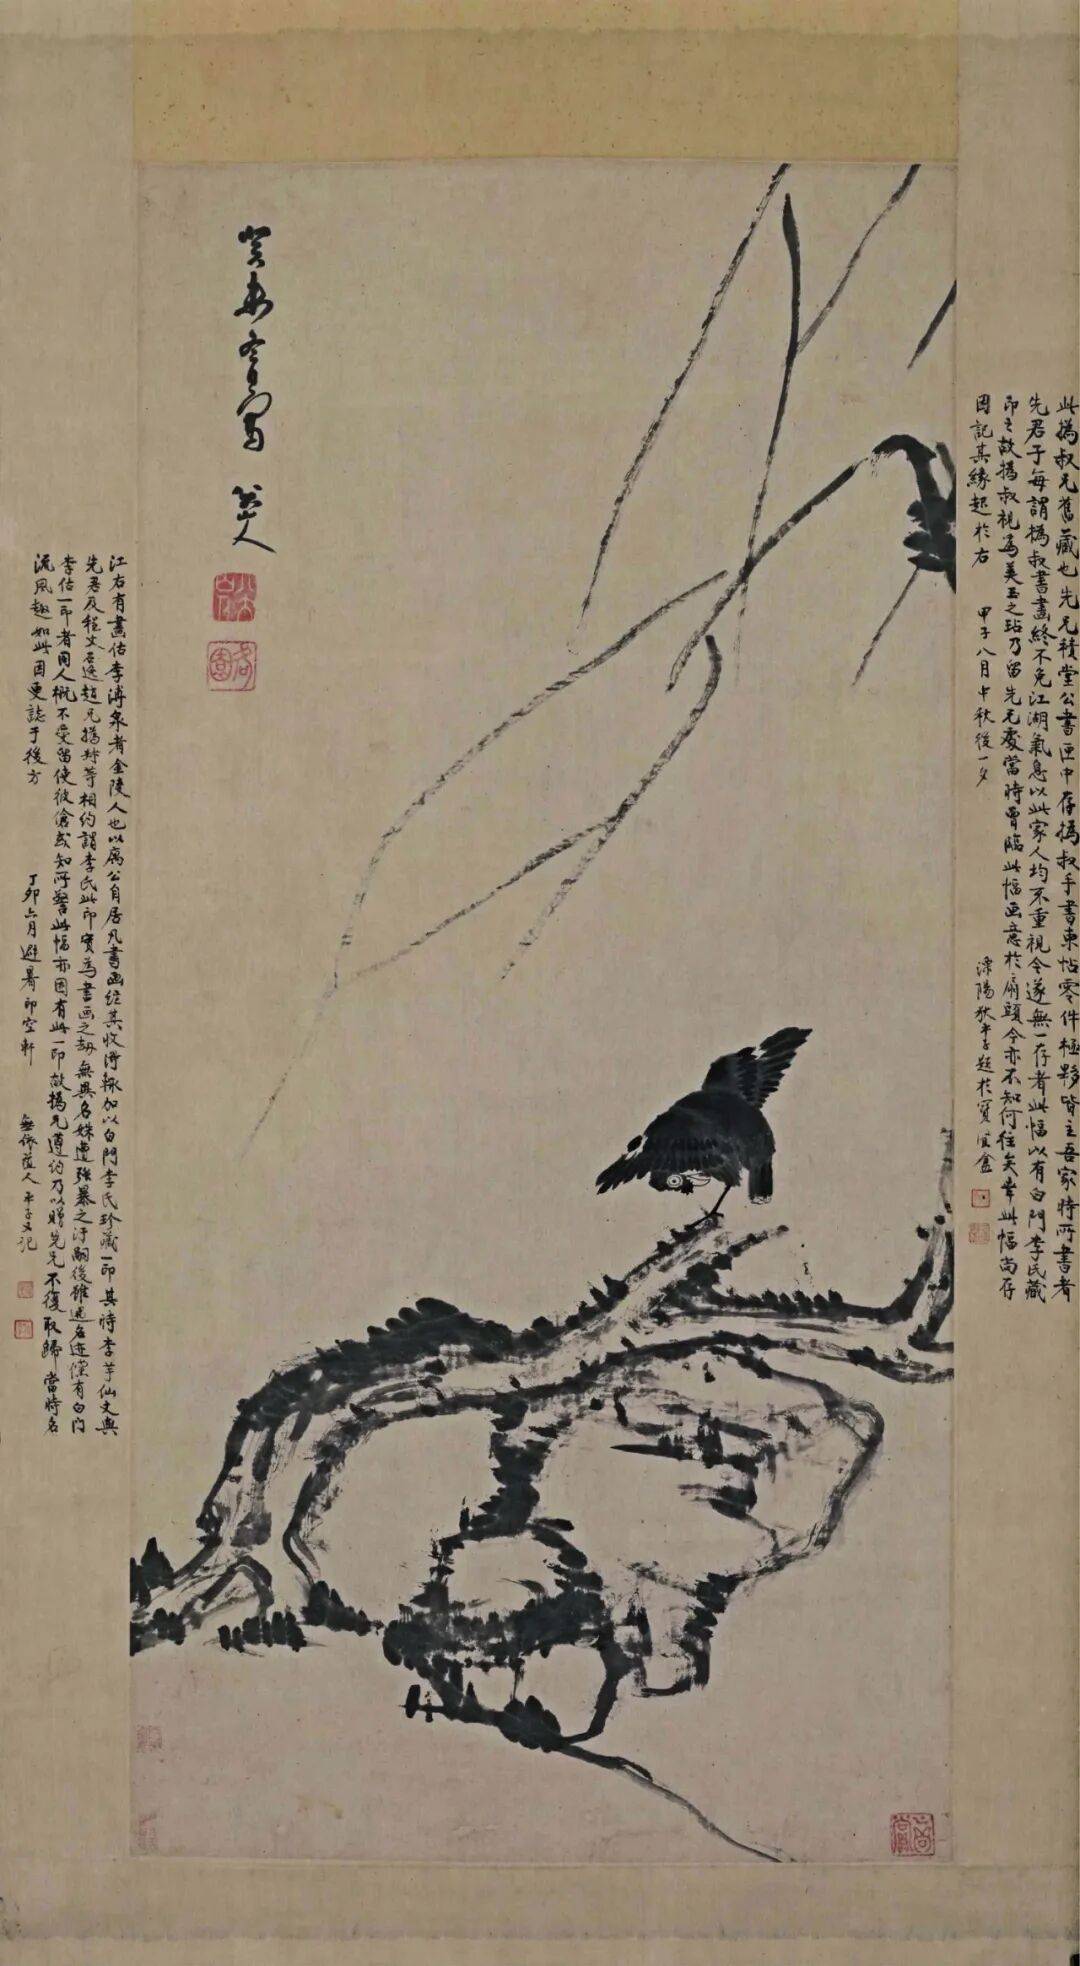 癸未冬日寫
八大山人
此撝叔兄舊藏也先兄積堂公書匣中存撝叔手書柬帖零件極夥皆主吾家時所書者
先君子每謂撝叔書畫終不免江湖氣息以此家人均不重視今遂無一存者此幅以有白門李氏藏
印之故撝叔視為美玉之玷乃留先兄處當時曾臨此幅画意於扇頭今亦不知何往矣幸此幅尚存
因記其緣起於右 甲子八月中秋後一夕 溧陽狄平子題於寶賢盦
江右有畫估李溥泉者金陵人也以廉公自居凡書画經其收得輒加以白門李氏珍藏一印其時李芋仙丈與
先君及程丈石逸趙兄撝叔等相約謂李氏此印實為書画之劫無異名姝遭強暴之汙嗣後雖遇名迹僅有白门
李估一印者同人概不受留使彼傖或知所警此幅亦因有此一印故撝兄遵约乃以贈先兄不復取歸當時名
流風趣如此因更誌于後方 丁卯六月避暑印空軒 平子又记